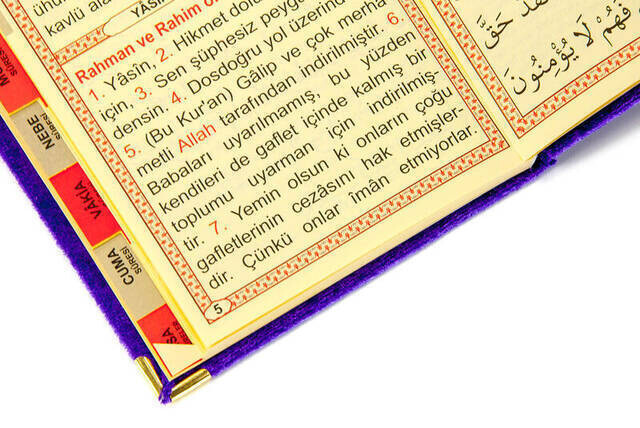 ühü
kavlü
YÂSİN
Rahman ve Rahim
1. Yâsîn, 2. Hikmet
için, 3. Sen şüphesiz
densin. 4. Dosdoğru yol üzerind
5. (Bu Kur'an) Gâlip ve çok merha-
metli Allah tarafından indirilmiştir. 6.
Babaları uyarılmamış, bu yüzden
kendileri de gaflet içinde kalmış bir
toplumu uyarman için indirilmiş-
tir. 7. Yemin olsun ki onların çoğu
gafletlerinin cezâsını hak etmişler-
dir. Çünkü onlar îmân etmiyorlar.
5
حَقَّ
فَهُمْ لَا يُؤْمِنُونَ
SÛRESİ
NEBE
SÛRESİ
VÂKIA
CUMA
SÛRESİ